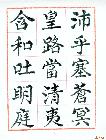 沛乎塞蒼冥
皇路當清夷
含和吐明庭